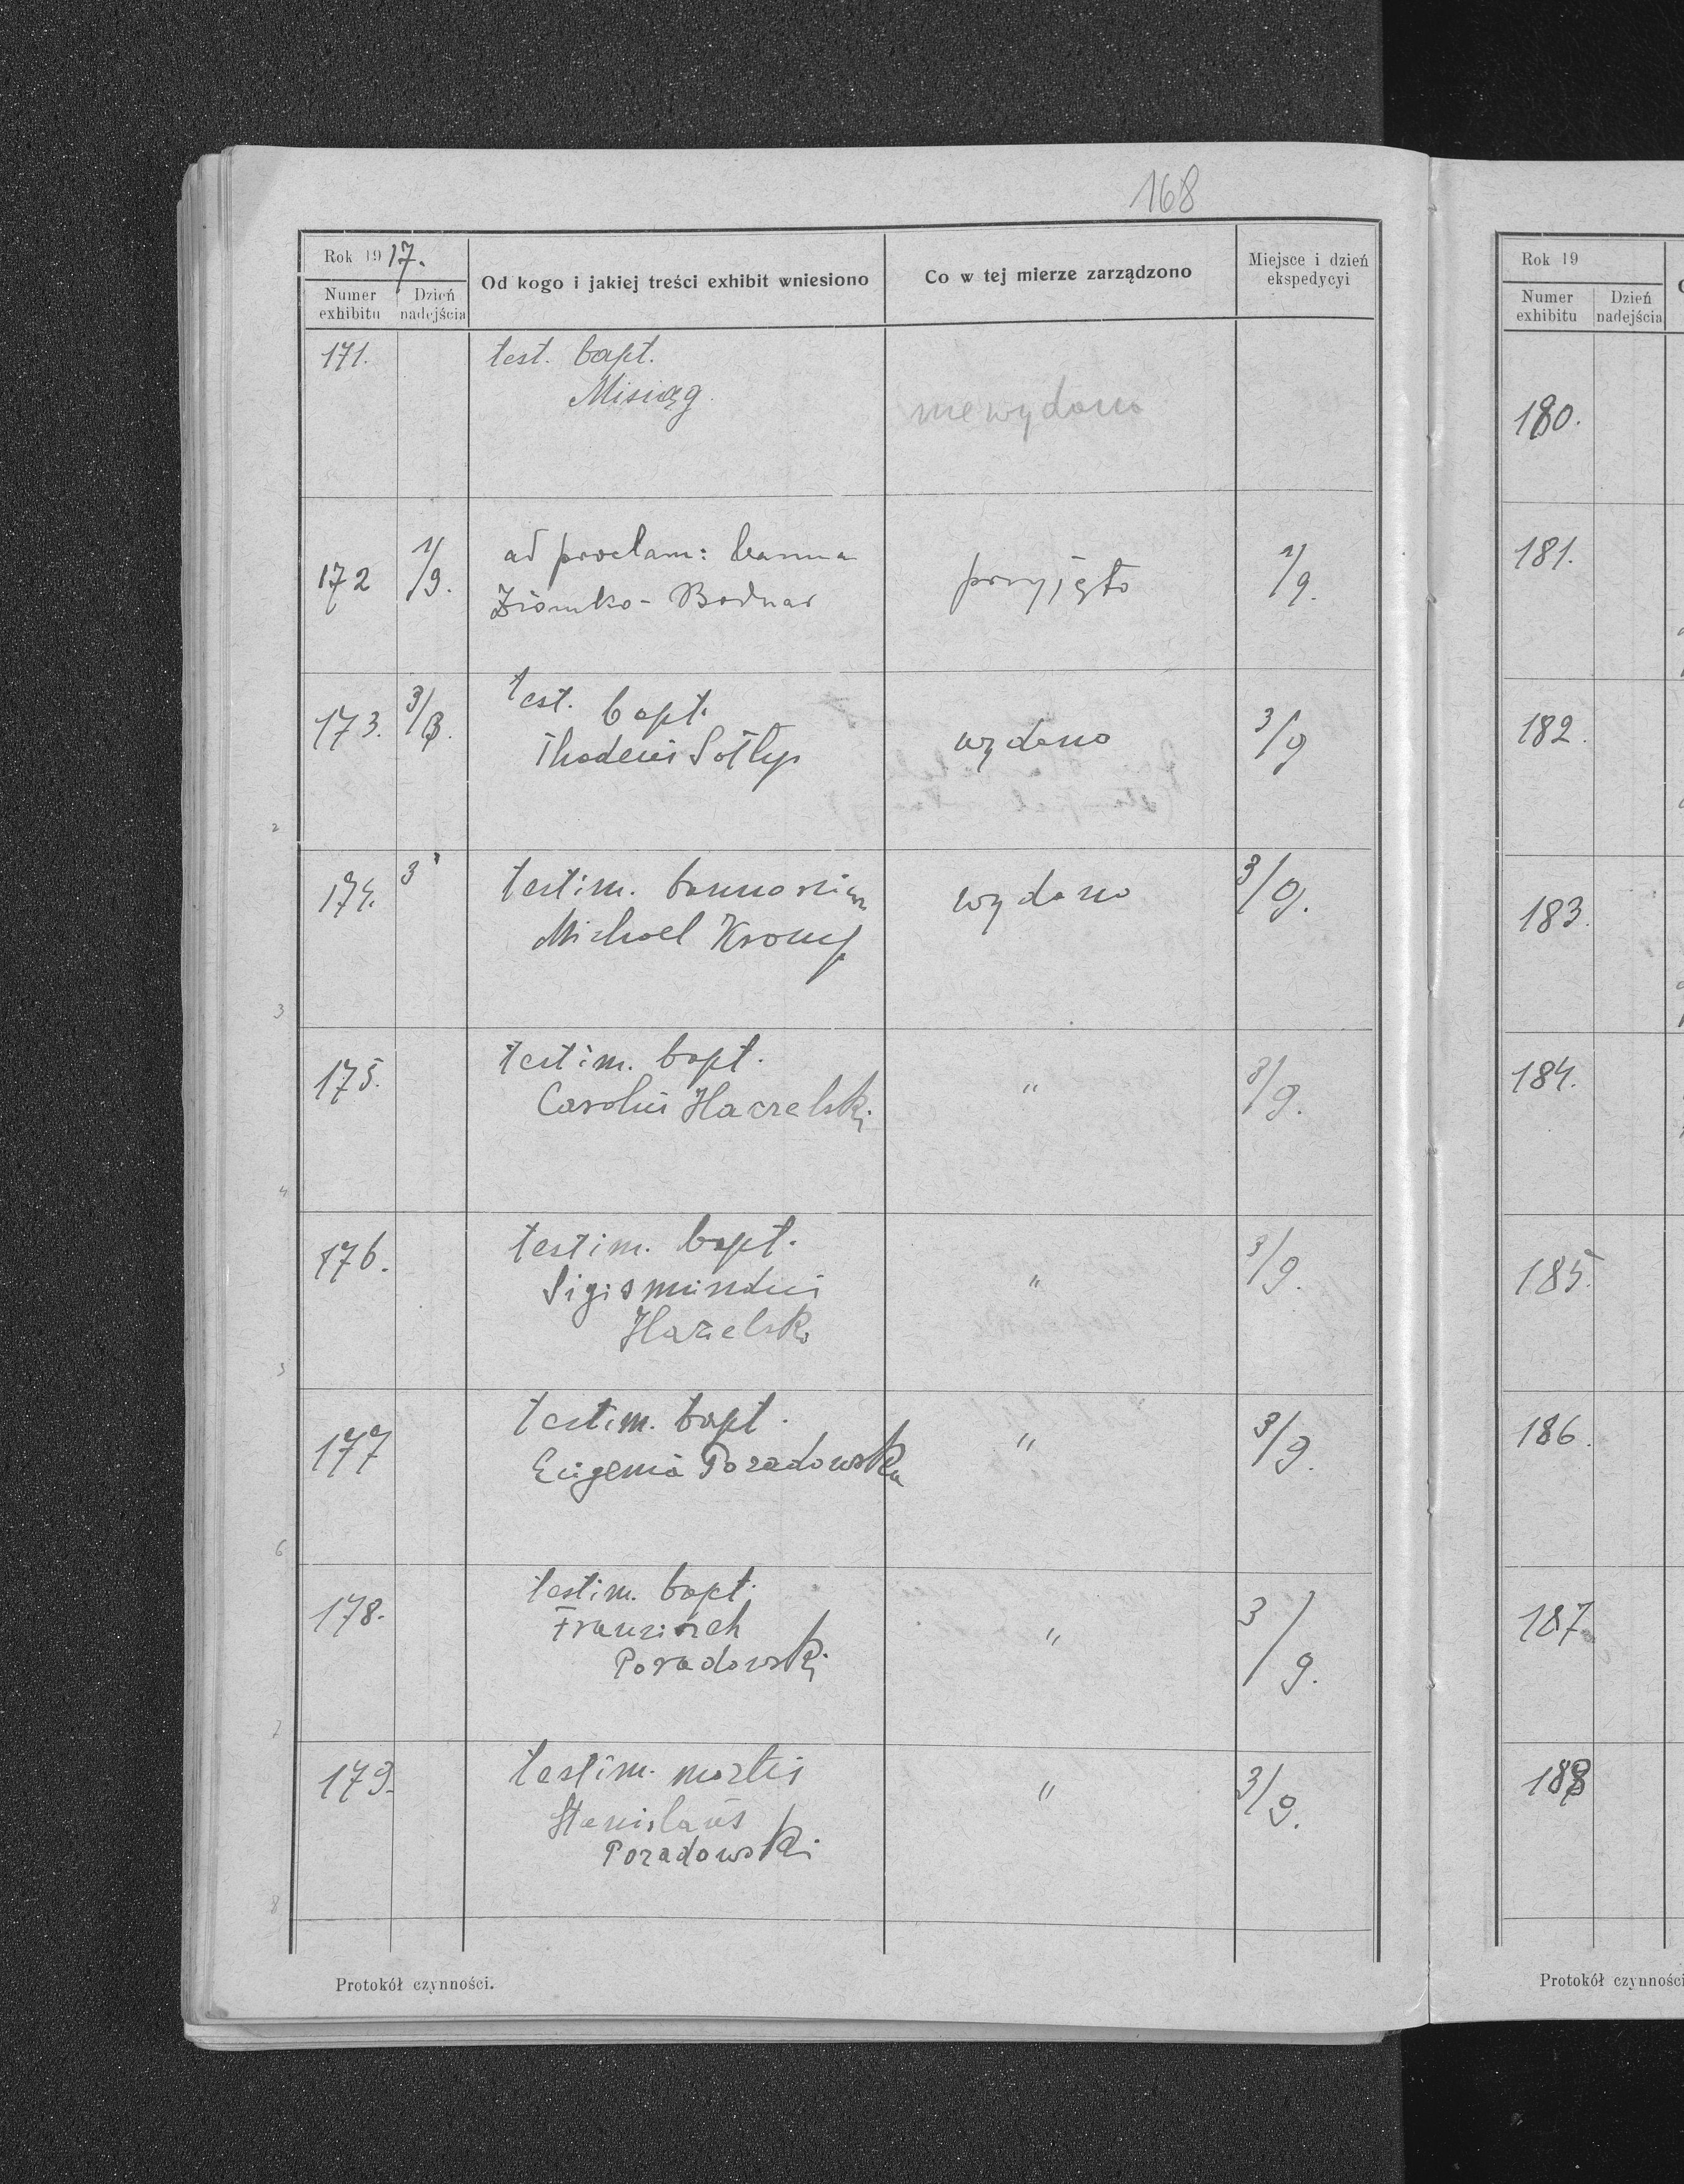 168
Rok 1917.
Numer exhibitu
Dzień nadejścia
Od kogo i jakiej treści exhibit wniesiono
Co w tej mierze zarządzono
Miejsce i dzień ekspedycyi
171. test. bapt.
Misiąg
nie wydano
172 1/9. ad proclam: banna przyjęto 1/9.
Ziomko - Bodnar
173. 3/9. test. bapt. wydano 3/9
Thadeus Sołtys
174. 3 testim. bannorum wydano 3/9.
Michael
175. testim. bapt. " 3/9.
Carolus Haczelski
176. testim. bapt. " 3/9.
Sigismundus
177 testim. bapt. " 3/9.
Eugenia Poradowska
178. testim. bapt. " 3/9.
Poradowski
179. testim. mortis " 3/9.
Stanislaus
Poradowski
2
3
4
5
6
7
8
Protokół czynności.
Rok 19
Numer exhibitu
Dzień nadejścia
180.
181.
182.
183.
184.
185.
186.
187
188
Protokół czynności